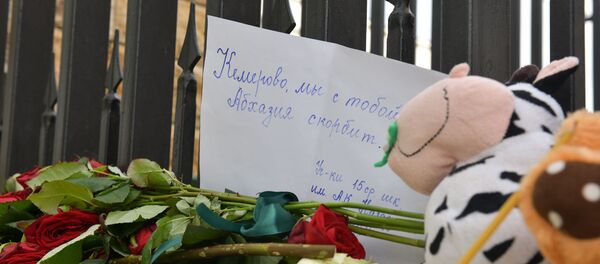 Кемерово, мы с тобой
Абхазия скорбит.
Уч-ки 15 ср шк
им